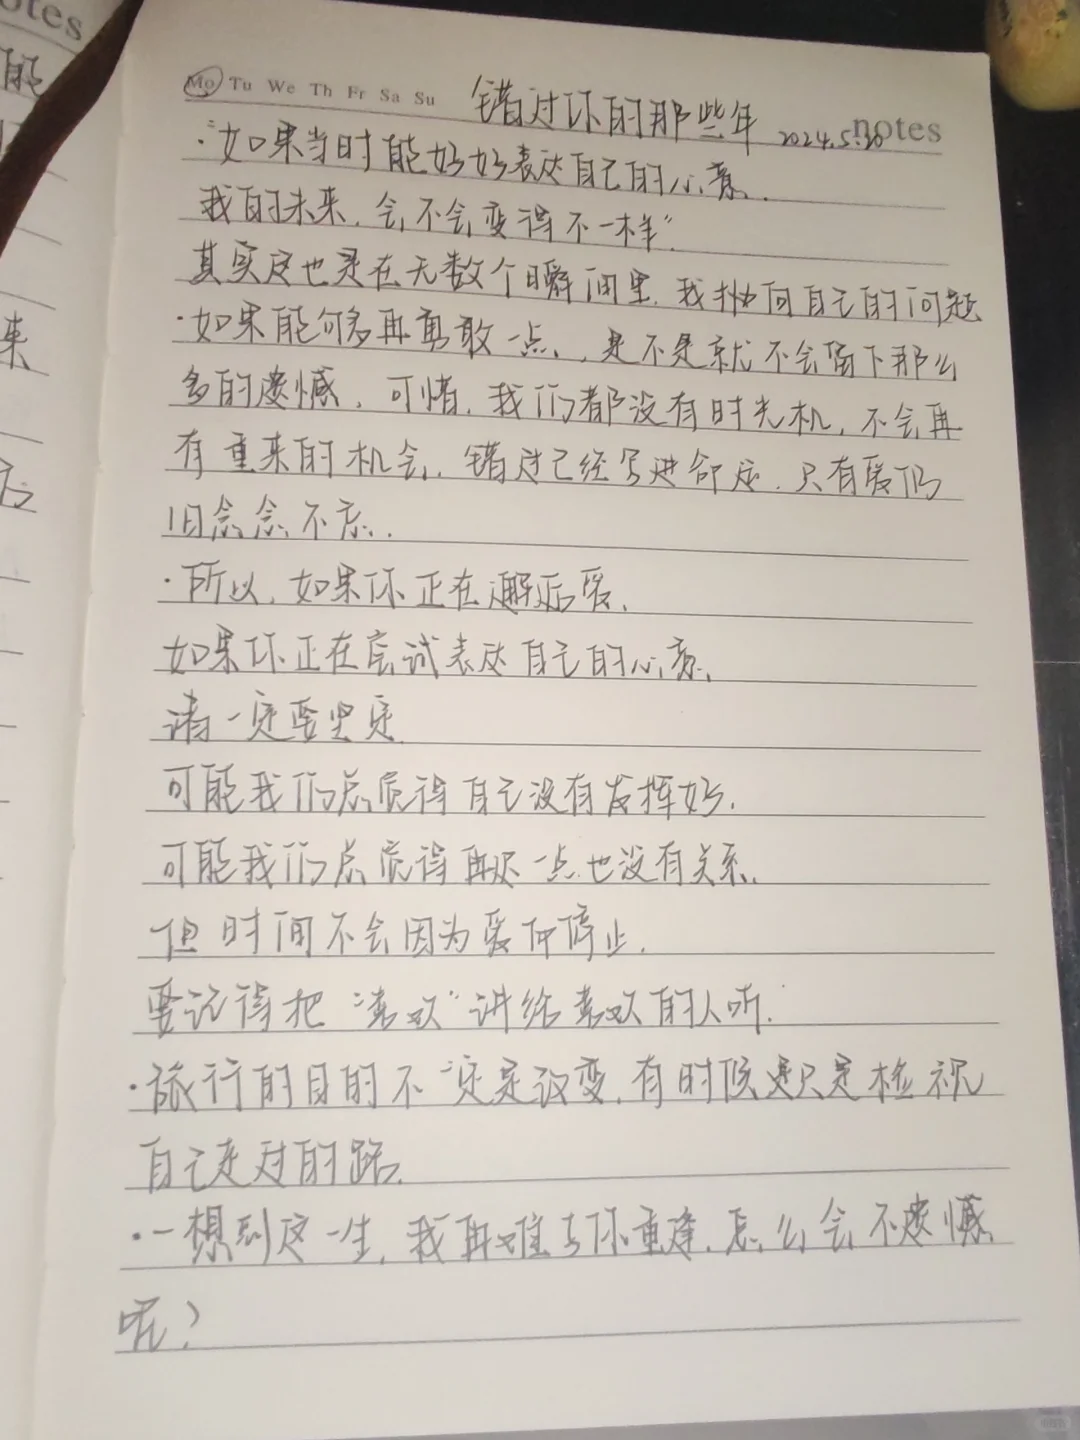 otes
能
来
Mo Tu We Th Fr Sa Su 错过你的那些年 2024.5.20 notes
·"如果当时能好好表达自己的心意,
我的未来,会不会变得不一样"
其实这也是在无数个瞬间里,我抛向自己的问题
·如果能够多再勇敢一点,是不是就不会留下那么
多的遗憾,可惜,我们都没有时光机,不会再
有重来的机会,错过已经写进命运,只有爱仍
旧念念不忘.
·所以,如果你正在邂逅爱,
如果你正在尝试表达自己的心意,
请一定要坚定
可能我们总觉得自己没有发挥好,
可能我们总觉得再迟一点也没有关系,
但时间不会因为爱而停止.
要记得把"喜欢"讲给喜欢的人听.
·旅行的目的不一定是改变,有时候是只是检视
自己走过的路.
·一想到这一生,我再难与你重逢,怎么会不遗憾
呢?